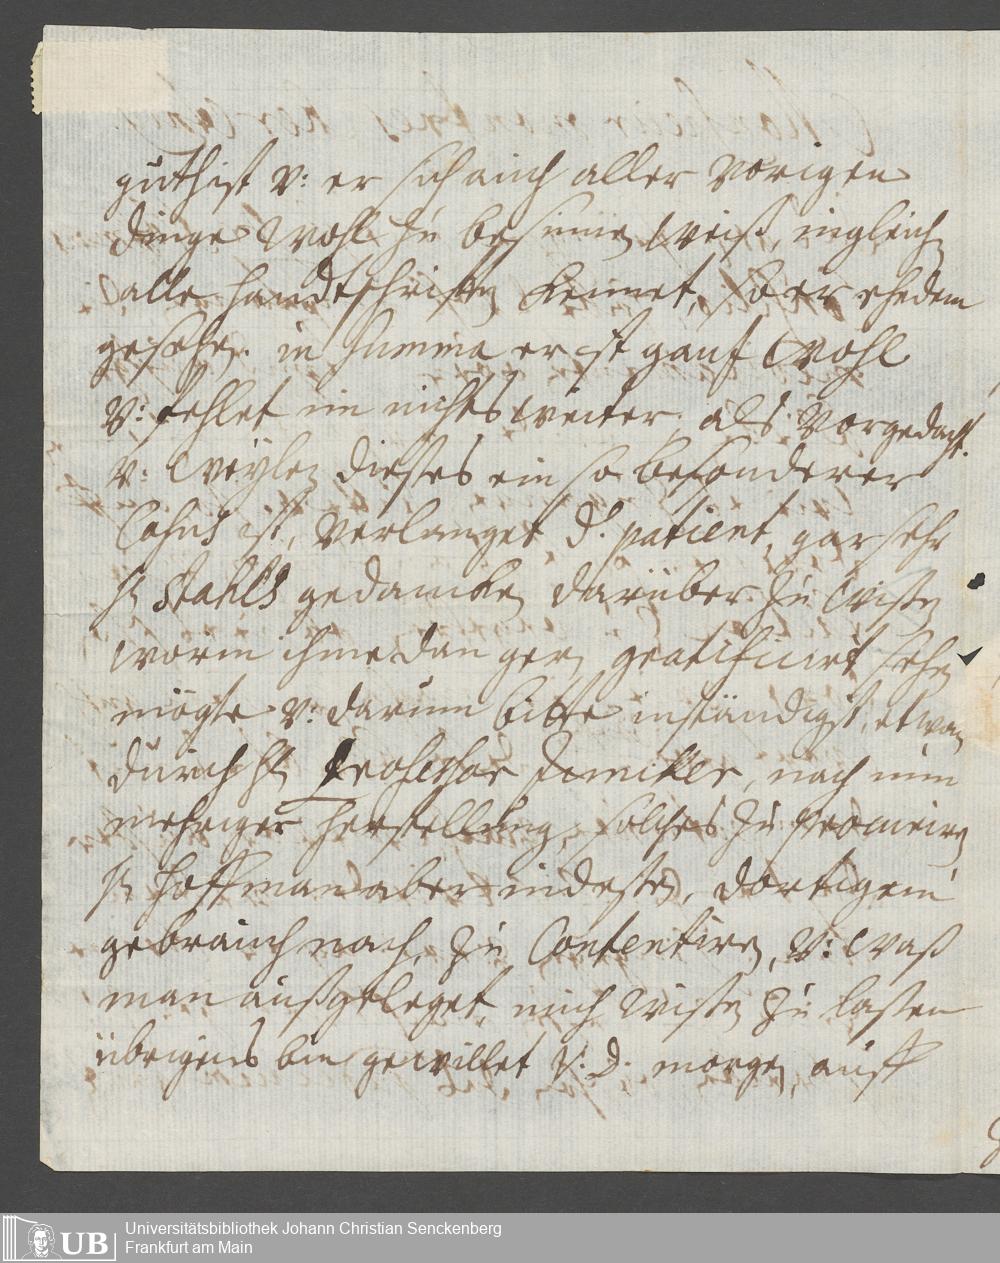 guth ist v: er sich auch aller vorigen
dinge wohl zu besinnen weiß, ingleich
alle handtschrifften kennet, so er ehedem
gesehen. in summa er ist gantz wohl
v: fehlet im nichts weiter, als vorgedacht.
v: weylen dieses ein so besonderer
Casus ist, verlanget d. patient gar sehr
H Stahls gedancken darüber zu wissen
worin ihme dan gern gratificirt sehen
mögte v: darum bitte inständigst, etwan
durch H Professor nach nun
mehriger herstellung, solches zu procuriren
H Hoffman aber indessen, dortigem
gebrauch nach, zu Contentiren, v: waß
man außgeleget, mich wissen zu lassen
übrigens bin gewillet V. D. morgen, auff
UB
Universitätsbibliothek Johann Christian Senckenberg
Frankfurt am Main